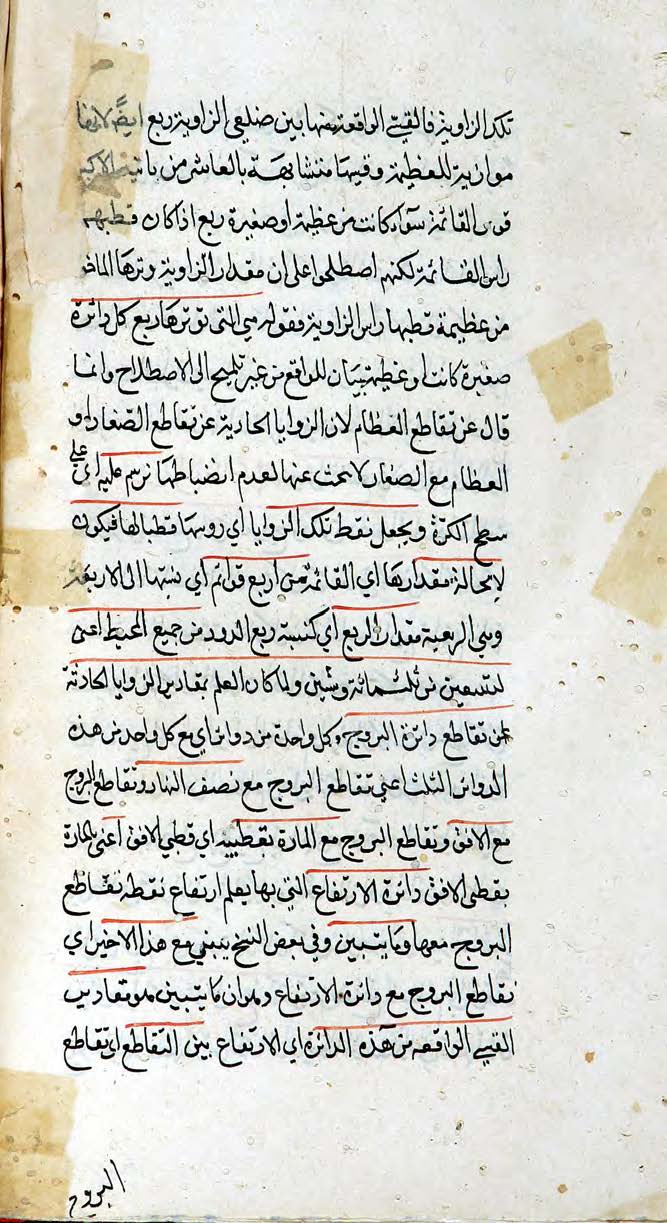 تلك الزاوية فالقسي الواقعة منها بين ضلعى الزاوية ربع ايضًا لانها
موازية للعظيمة وقسيها متشابهة بالعاشر من ثانية الاكر
قوس القائمة سواء كانت من عظيمة او صغيرة ربع اذا كان قطبهم
راس القائمة لكنهم اصطلحوا على ان مقدار الزاوية وترها الماخو
من عظيمة قطبها راس الزاوية فقوله هي التى توترها ربع كل دائرة
صغيرة كانت او عظيمة بيان للواقع من غير تلميح الى الاصطلاح وانما
قال عن تقاطع العظام لان الزوايا الحادثة عن تقاطع الصغار او
العظام مع الصغار لا يبحث عنها لعدم انضباطها نرسم عليه اى على
سطح الكرة ويجعل نقط تلك الزوايا اي روسها قطبا لها فيكون
لا محالة مقدارها اي القائمة من اربع قوائم اي نسبتها الى الاربعة
وهي الربعية مقدار الربع اي كنسبة ربع الدور من جميع المحيط اعنى
لتسعين من ثلثمائة وستين ولما كان العلم بمقادير الزوايا الحادثة
عن تقاطع دائرة البروج وكل واحدة من دوائر اي مع كل واحد من هذه
الدوائر الثلث اعني تقاطع البروج مع نصف النهار وتقاطع البروج
مع الافق وتقاطع البروج مع المارة بقطبيه اي قطبي الافق اعنى بالمارة
بقطبى الافق دائرة الارتفاع التي بها يعلم ارتفاع نقطة تقاطع
البروج معها ومما يتبين وفي بعض النسخ ينبغي مع هذا الاخير اي
تقاطع البروج مع دائرة الارتفاع يتبين مقادير
القسي الواقعه من هذه الدائرة اي الارتفاع بين التقاطع اى تقاطع
البروج